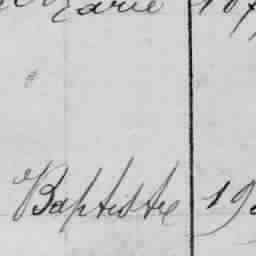 Marie 187
Baptiste 19